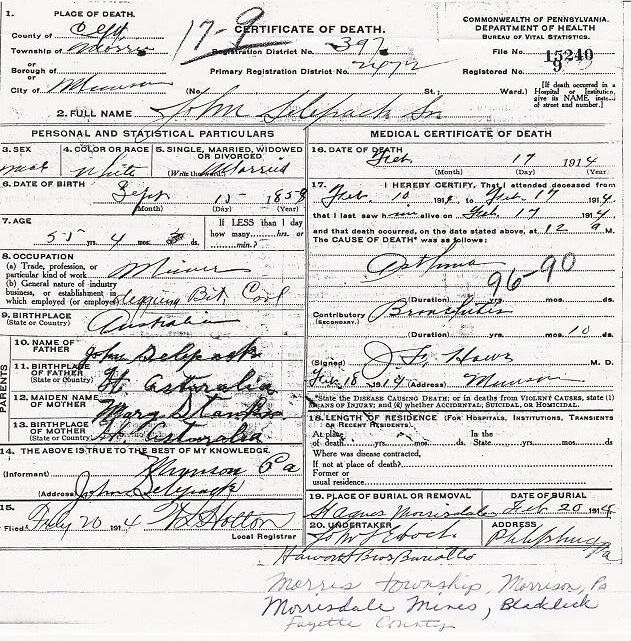 1. PLACE OF DEATH.
County of
Township of Morris
or
Borough of
or
City of Munson
17-9
CERTIFICATE OF DEATH.
Registration District No. 397
Primary Registration District No. 2472
(No. St.; Ward.)
COMMONWEALTH OF PENNSYLVANIA.
DEPARTMENT OF HEALTH
BUREAU OF VITAL STATISTICS.
File No. 15240
Registered No. 9
[If death occurred in a Hospital or Institution, give its NAME instead of street and number.]
2. FULL NAME John Selepack Sr
PERSONAL AND STATISTICAL PARTICULARS
3. SEX
4. COLOR OR RACE
5. SINGLE, MARRIED, WIDOWED OR DIVORCED
White
(Write the word) Married
6. DATE OF BIRTH
Sept 15 1858
(Month) (Day) (Year)
7. AGE
55 yrs. 4 mos. ds.
If LESS than 1 day how many hrs. or min.?
8. OCCUPATION
(a) Trade, profession, or particular kind of work Miner
(b) General nature of industry business, or establishment in which employed (or employer) Bit. Coal
9. BIRTHPLACE
(State or Country) Australia
PARENTS
10. NAME OF FATHER John Selepack
11. BIRTHPLACE OF FATHER
(State or Country) Astoralia
12. MAIDEN NAME OF MOTHER Mary
13. BIRTHPLACE OF MOTHER
(State or Country) Astoralia
14. THE ABOVE IS TRUE TO THE BEST OF MY KNOWLEDGE.
Munson Pa
(Informant)
(Address) John Selepack
15.
Filed 20 1914
Local Registrar
MEDICAL CERTIFICATE OF DEATH
16. DATE OF DEATH
Feb 17 1914
(Month) (Day) (Year)
17. I HEREBY CERTIFY, That I attended deceased from
Feb. 10 1914, to Feb. 17 1914
that I last saw him alive on Feb 17 1914
and that death occurred, on the date stated above, at 12 a M.
The CAUSE OF DEATH* was as follows:
Asthma
96-90
(Duration) yrs. mos. ds.
Contributory Bronchitis
(SECONDARY.)
(Duration) yrs. mos. 10 ds.
(Signed) M. D.
Feb 18 1914 (Address) Munson
*State the DISEASE CAUSING DEATH; or in deaths from VIOLENT CAUSES, state (1) MEANS OF INJURY; and (2) whether ACCIDENTAL, SUICIDAL, or HOMICIDAL.
18. LENGTH OF RESIDENCE (FOR HOSPITALS, INSTITUTIONS, TRANSIENTS OR RECENT RESIDENTS).
At place of death yrs. mos. ds. In the State yrs. mos. ds.
Where was disease contracted,
If not at place of death?
Former or
usual residence
19. PLACE OF BURIAL OR REMOVAL
DATE OF BURIAL
St Agnes Morrisdale Feb 20 1914
20. UNDERTAKER
ADDRESS
Philipsburg Pa
Morris Township, Morrison, Pa
Morrisdale Mines, Blacklick
Fayette County